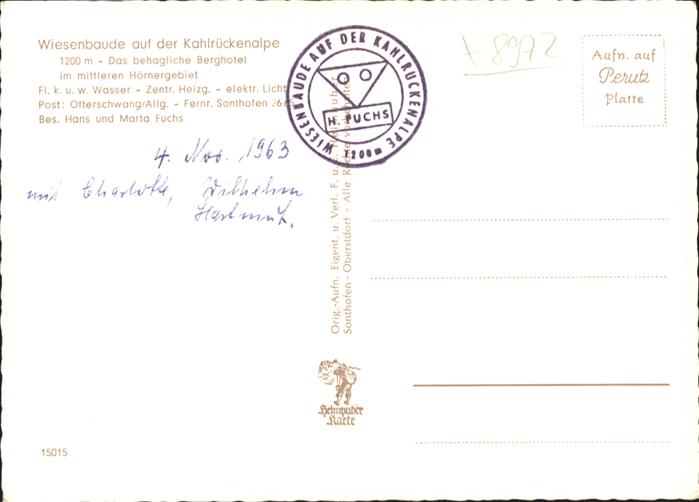 Wiesenbaude auf der Kahlrückenalpe
1200 m - Das behagliche Berghotel
im mittleren Hörnergebiet
Fl. k. u. w. Wasser - Zentr. Heizg. - elektr. Licht
Post: Ofterschwang/Allg. - Fernr. Sonthofen 2665
Bes. Hans und Marta Fuchs
4. Nov. 1963
mit Charlotte, Wilhelm
Hartmut.
WIESENBAUDE AUF DER KAHLRÜCKENALPE
H. FUCHS
1200 m
Aufn. auf
Perutz
Platte
Orig.-Aufn. Eigent. u. Verl. F. u.
Sonthofen - Oberstdorf - Alle Rechte vorbehalten
Heimhuber
Karte
1501S